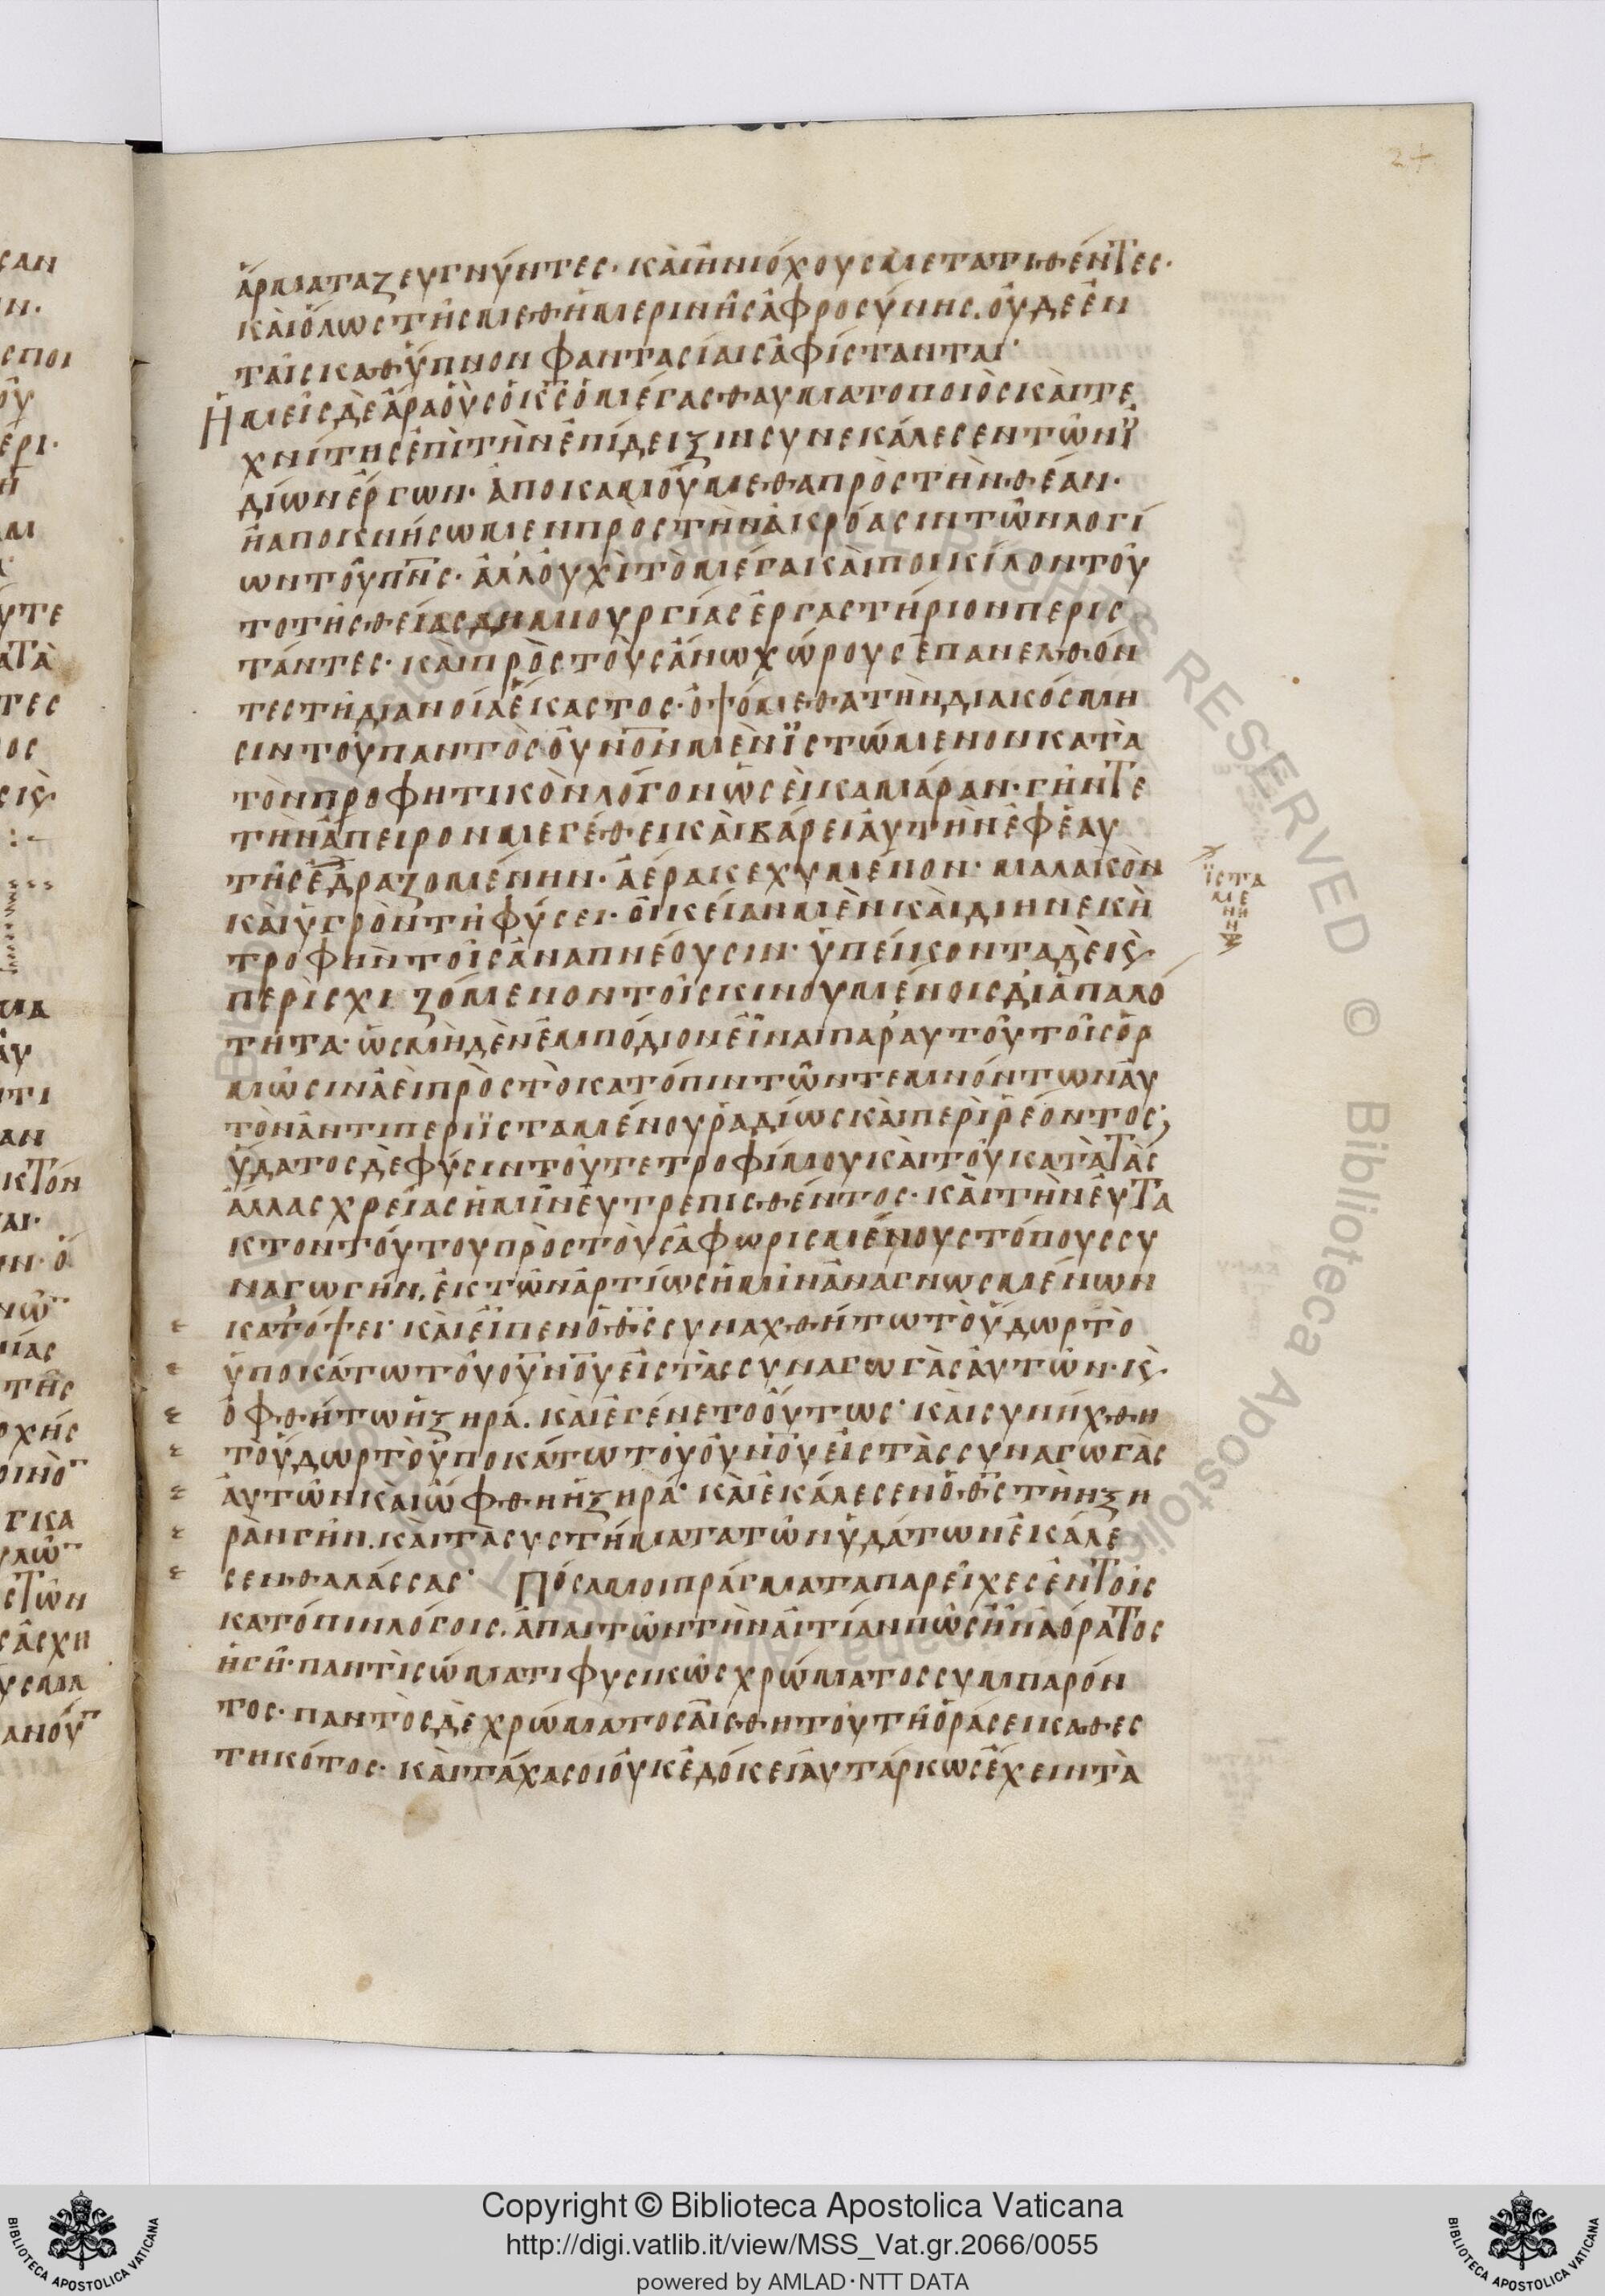 24
ἅρματα ζευγνύντες· καὶ ἡνιόχους μετατιθέντες·
καὶ ὅλως τῆς μεθημερινῆς ἀφροσύνης. οὐδὲ ἐν
ταῖς καθ' ὕπνον φαντασίαις ἀφίστανται·
Ἡμεῖς δὲ ἄρα οὓς ὁ κ̅ς̅ ὁ μέγας θαυματοποιὸς καὶ τε
χνίτης ἐπὶ τὴν ἐπίδειξιν συνεκάλεσεν τῶν ἰ
δίων ἔργων· ἀποκαμούμεθα πρὸς τὴν θέαν·
ἢ ἀποκνήσωμεν πρὸς τὴν ἀκρόασιν τῶν λογί
ων τοῦ π̅ν̅ς̅· ἀλλ' οὐχὶ τὸ μέγα καὶ ποικίλον τοῦ
το τῆς θείας δημιουργίας ἐργαστήριον περισ
τάντες· καὶ πρὸς τοὺς ἄνω χώρους ἐπανελθόν
τες τῇ διανοίᾳ ἕκαστος· ὀψόμεθα τὴν διακόσμη
σιν τοῦ παντὸς οὐν̅ο̅ν μὲν ϊστώμενον κατὰ
τὸν προφητικὸν λόγον ὡσεὶ καμάραν· γῆν τε
τὴν ἄπειρον μεγέθει καὶ βάρει αὐτὴν ἐφ' ἑαυ
τῆς ἑδραζομένην· ἀέρα κεχυμένον· μαλακὸν
καὶ ὑγρὸν τῇ φύσει· οἰκείαν μὲν καὶ διηνεκῆ
τροφὴν τοῖς ἀναπνέουσιν· ὑπείκοντα δὲ κ̀
περισχιζόμενον τοῖς κινουμένοις δι' ἁπαλό
τητα· ὡς μηδὲν ἐμπόδιον εἶναι παρ' αὐτοῦ τοῖς ὁρ
μῶσιν ἀεὶ πρὸς τὸ κατόπιν τῶν τεμνόντων αὐ
τὸν ἀντιπεριϊσταμένου ῥαδίως καὶ περὶρέοντος;
ὕδατος δὲ φύσιν τοῦ τε τροφίμου καὶ τοῦ κατὰ τὰς
ἄλλας χρείας ἡμῖν εὐτρεπισθέντος· καὶ τὴν εὔτα
κτον τούτου πρὸς τοὺς ἀφωρισμένους τόπους συ
ναγωγήν, ἐκ τῶν ἀρτίως ἡμῖν ἀναγνωσμένων
κατόψει· καὶ εἶπεν ὁ θ̅ς̅ συναχθήτω τὸ ὕδωρ τὸ
ὑποκάτω τοῦ ο̅υ̅ν̅ο̅υ̅ εἰς τὰς συναγωγὰς αὐτῶν· κ̀
ὀφθήτω ἡ ξηρά. καὶ ἐγένετο οὕτως· καὶ συνήχθη
τὸ ὕδωρ τὸ ὑποκάτω τοῦ ο̅υ̅ν̅ο̅υ̅ εἰς τὰς συναγωγὰς
αὐτῶν καὶ ὤφθη ἡ ξηρά· καὶ ἐκάλεσεν ὁ θ̅ς̅ τὴν ξη
ρὰν γῆν. καὶ τὰ συστήματα τῶν ὑδάτων ἐκάλε
σεν θαλάσσας· Πόσα μοι πράγματα παρεῖχες ἐν τοῖς
κατόπιν λόγοις. ἀπαιτῶν τὴν αἰτίαν πῶς ἦν ἀόρατος
ἡ γῆ· παντὶ σώματι φυσικῶς χρώματος συμπαρόν
τος· παντὸς δὲ χρώματος αἰσθητοῦ τῇ ὁράσει καθεσ
τηκότος· καὶ τάχα σοι οὐκ ἐδόκει αὐτάρκως ἔχειν τὰ
ϊστα
με
νη
ν
Copyright © Biblioteca Apostolica Vaticana
http://digi.vatlib.it/view/MSS_Vat.gr.2066/0055
powered by AMLAD·NTT DATA